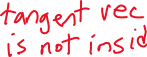 tangent vec
is not insid